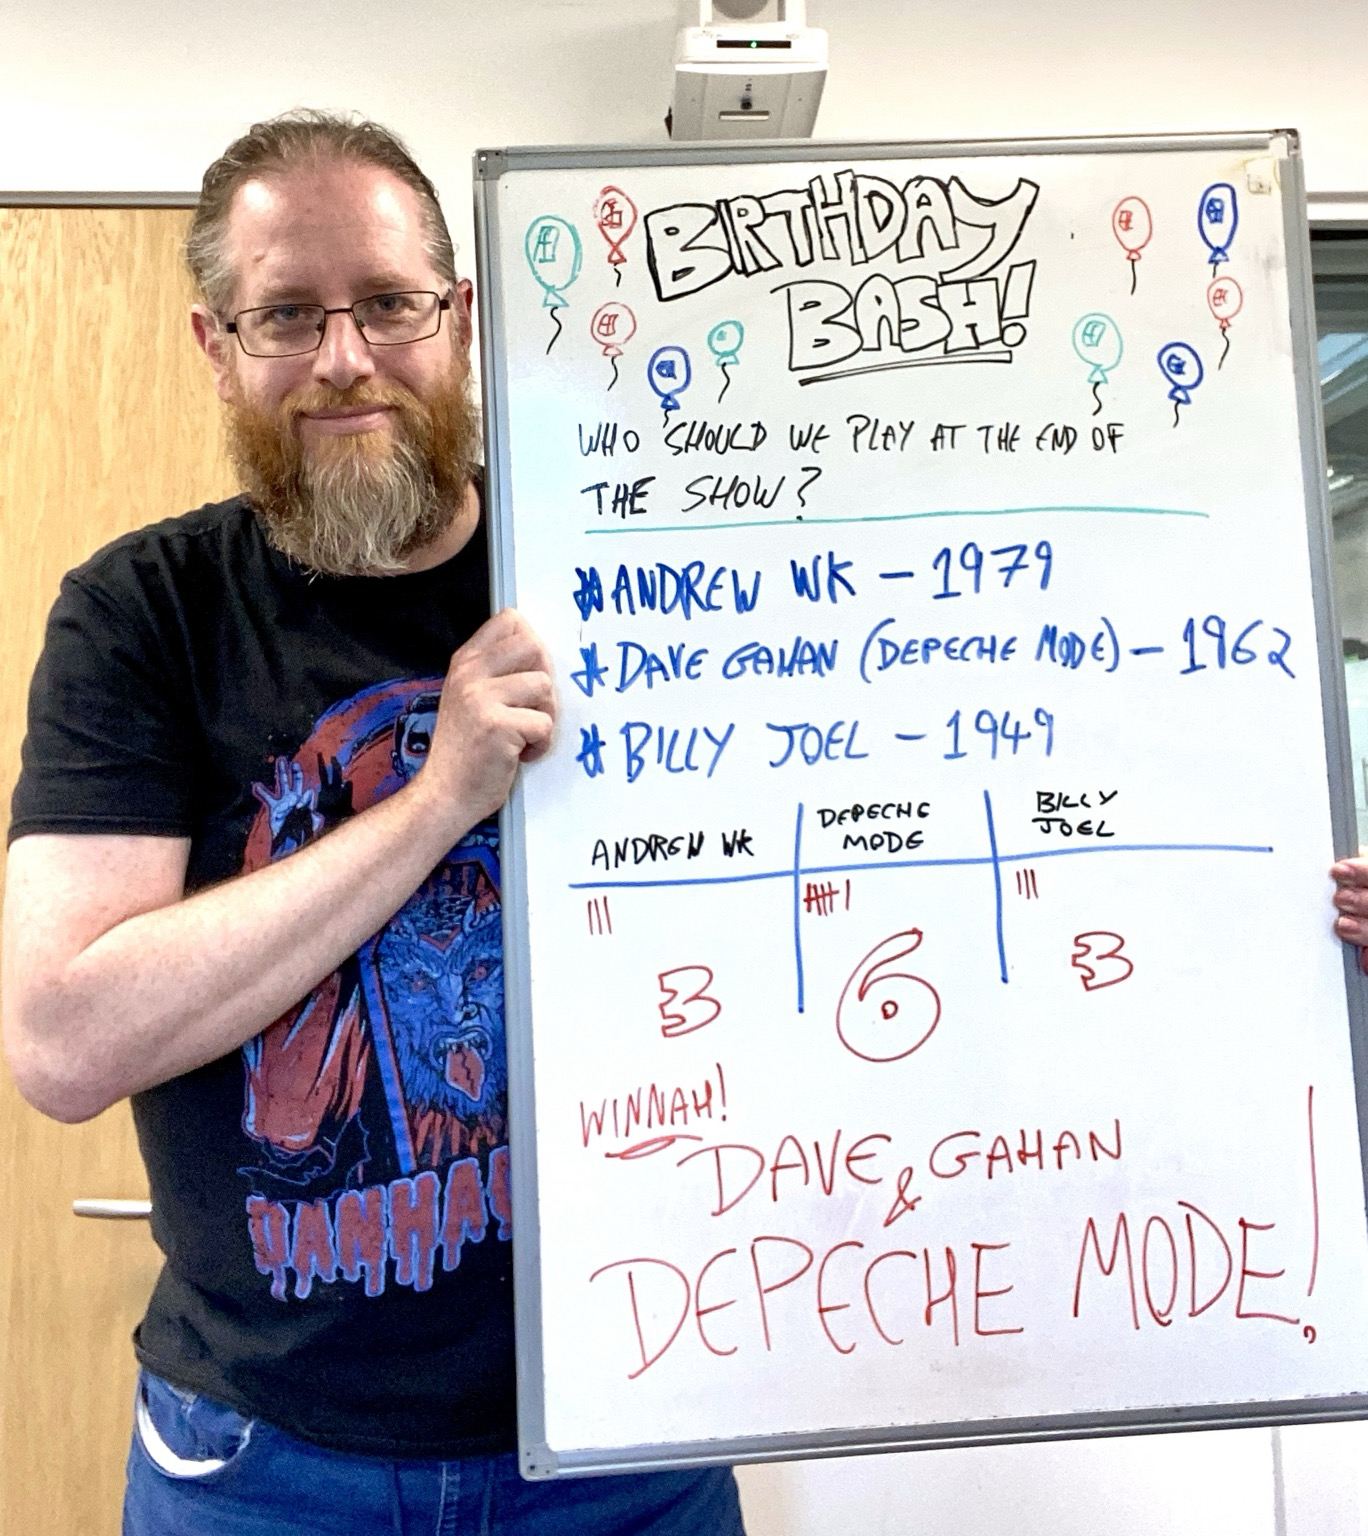 BIRTHDAY
BASH!
WHO SHOULD WE PLAY AT THE END OF
THE SHOW?
ANDREW WK – 1979
DAVE GAHAN (DEPECHE MODE) – 1962
BILLY JOEL – 1949
ANDREW WK
DEPECHE
MODE
BILLY
JOEL
3
6
3
WINNAH!
DAVE GAHAN
&
DEPECHE MODE!